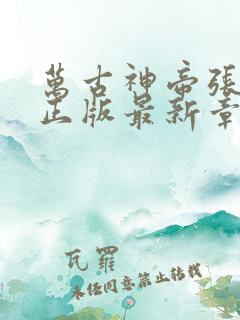 萬古神帝張
正版最新章
瓦羅
未經同意禁止轉載